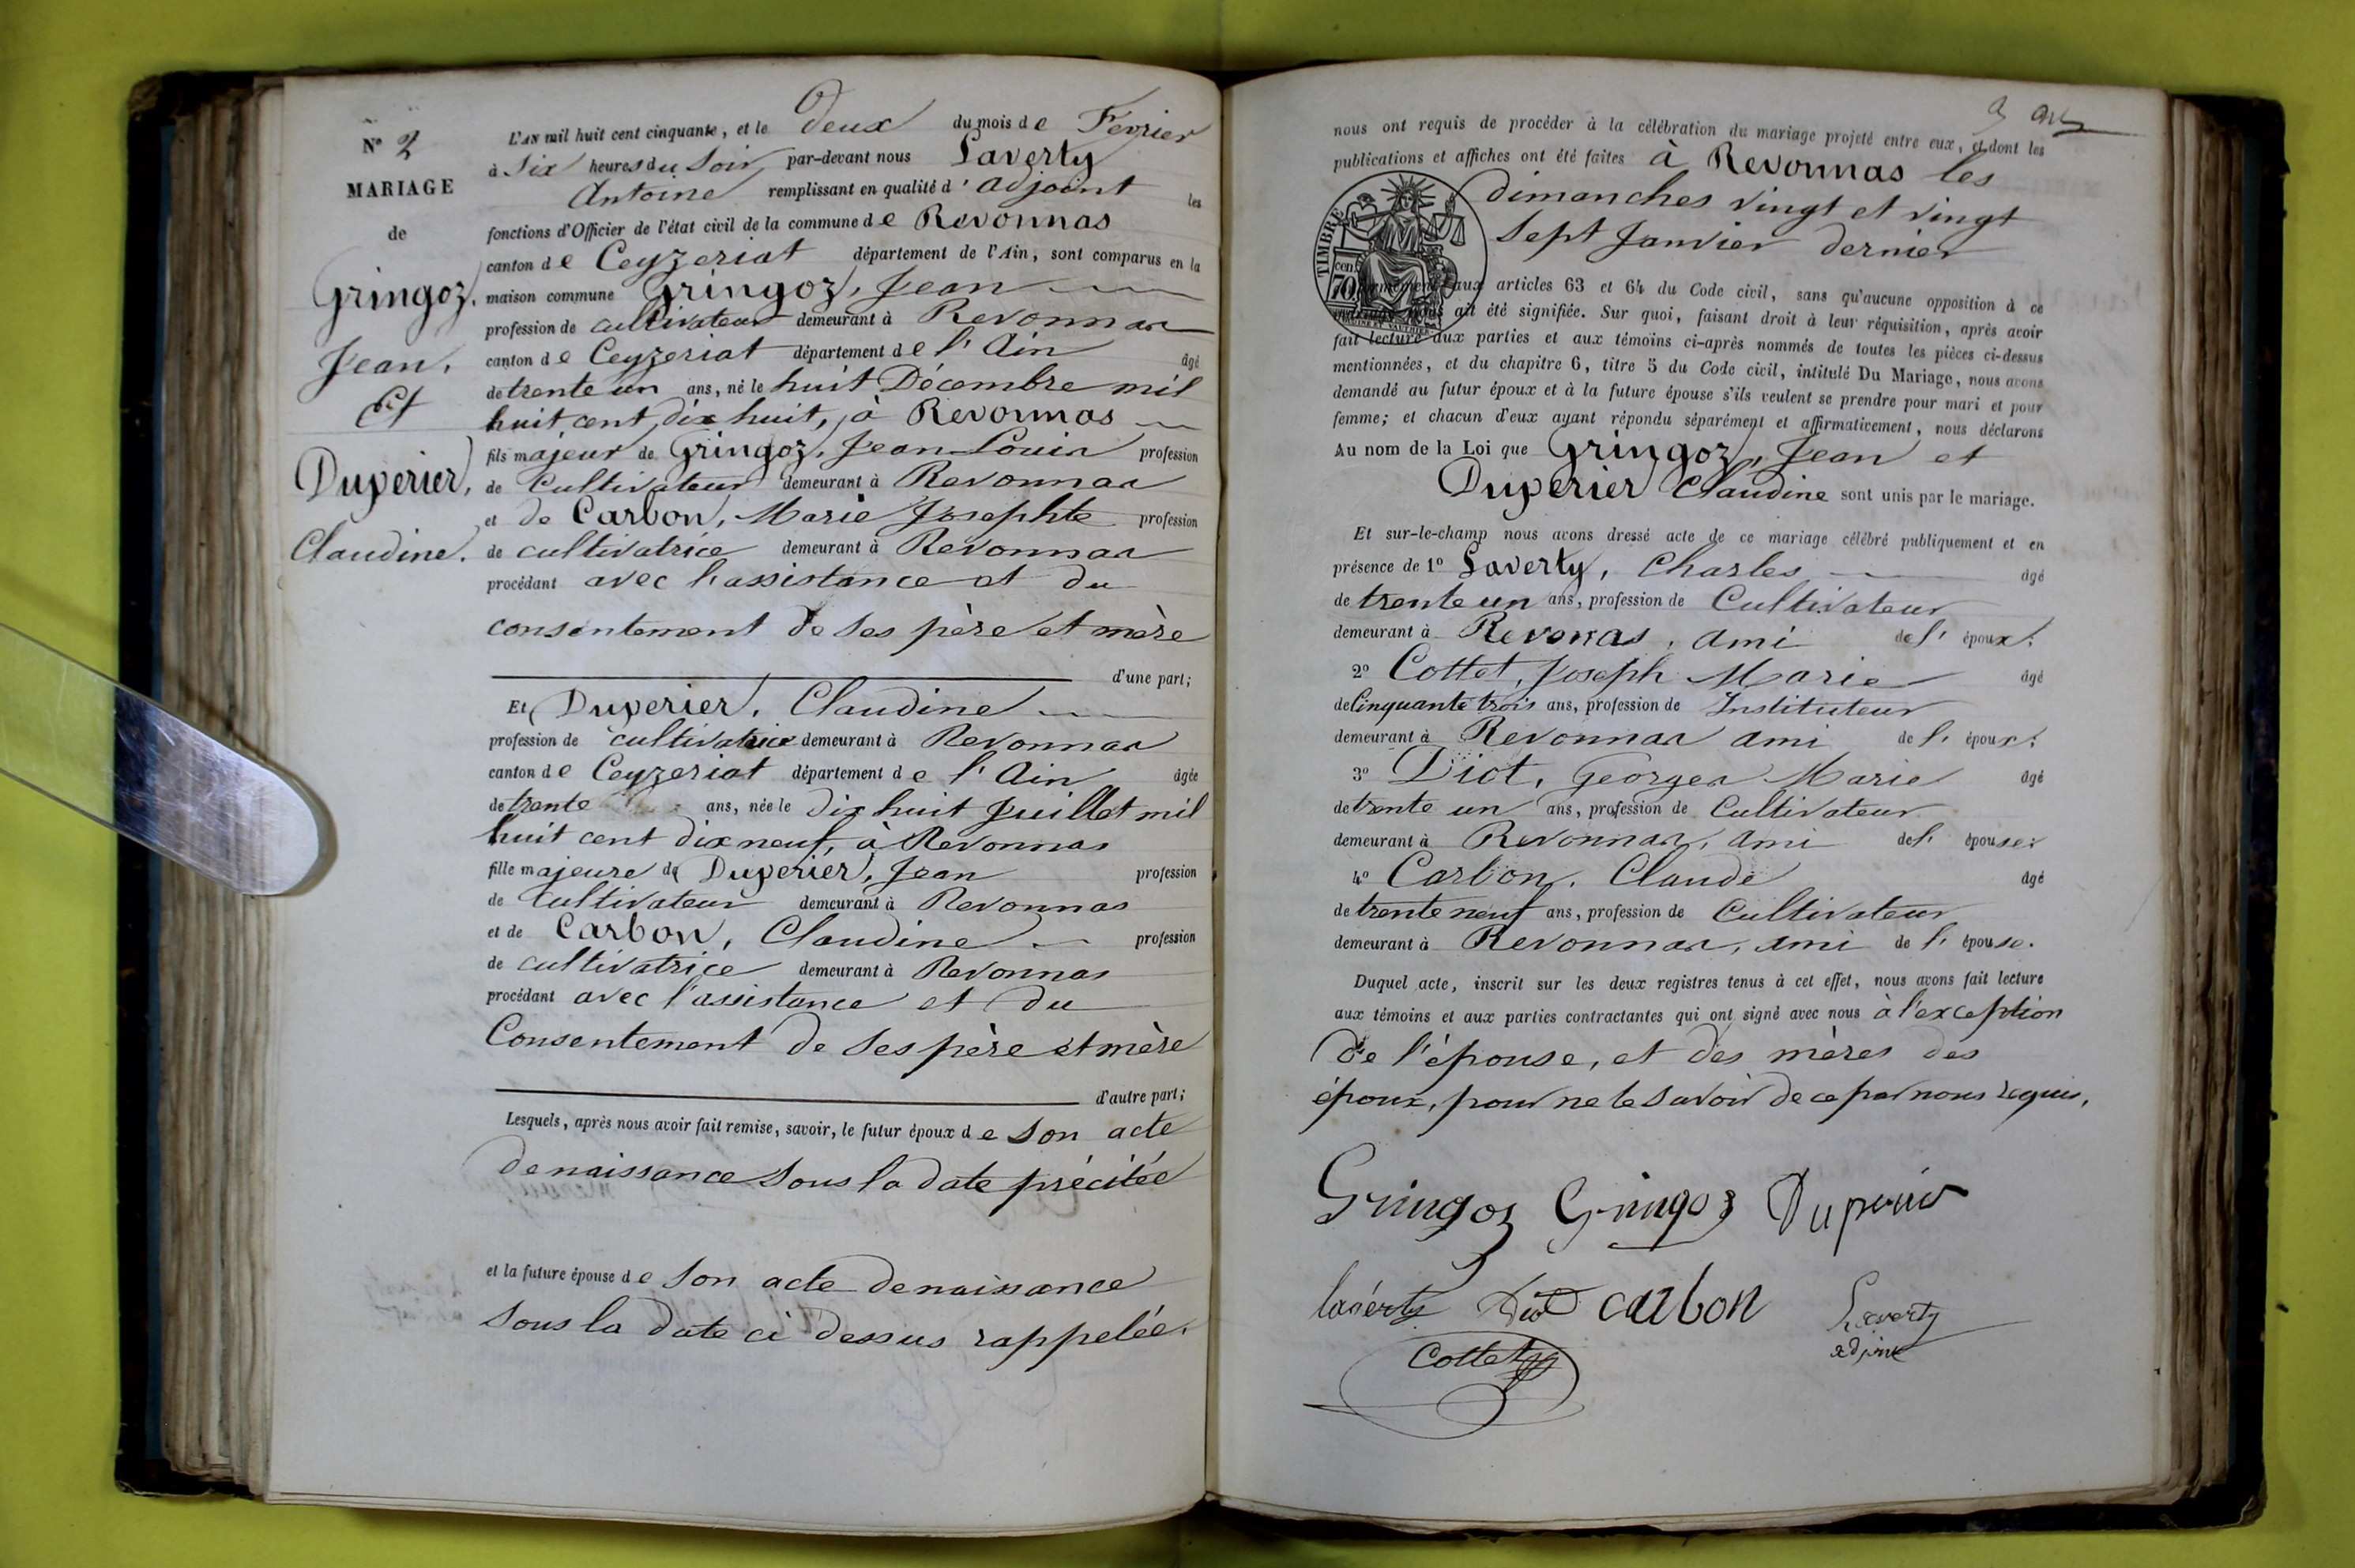 N° 2
MARIAGE
de
Gringoz,
Jean,
Et
Duperier,
Claudine.
L'AN mil huit cent cinquante, et le deux du mois de Fevrier
à Six heures du Soir, par-devant nous Laverty
Antoine remplissant en qualité d'adjoint les
fonctions d'Officier de l'état civil de la commune de Revonnas
canton de Ceyzeriat département de l'Ain, sont comparus en la
maison commune Gringoz, Jean
profession de cultivateur demeurant à Revonnas
canton de Ceyzeriat département de l'Ain âgé
de trente un ans, né le huit Décembre mil
huit cent dix huit, à Revonnas
fils majeur de Gringoz, Jean Louis profession
de Cultivateur demeurant à Revonnas
et de Carbon, Marie Josephte profession
de cultivatrice demeurant à Revonnas
procédant avec l'assistance et du
consentement de ses père et mère
d'une part;
Et Duperier, Claudine
profession de cultivatrice demeurant à Revonnas
canton de Ceyzeriat département de l'Ain âgée
de trente ans, née le dix huit Juillet mil
huit cent dix neuf, à Revonnas
fille majeure de Duperier, Jean profession
de Cultivateur demeurant à Revonnas
et de Carbon, Claudine profession
de cultivatrice demeurant à Revonnas
procédant avec l'assistance et du
Consentement de ses père et mère
d'autre part;
Lesquels, après nous avoir fait remise, savoir, le futur époux de son acte
de naissance sous la date précitée
et la future épouse de son acte de naissance
sous la date ci dessus rappelée.
nous ont requis de procéder à la célébration du mariage projeté entre eux, et dont les
publications et affiches ont été faites à Revonnas les
dimanches vingt et vingt
sept Janvier dernier
TIMBRE
70 cen.
aux articles 63 et 64 du Code civil, sans qu'aucune opposition à ce
ait été signifiée. Sur quoi, faisant droit à leur réquisition, après avoir
fait lecture aux parties et aux témoins ci-après nommés de toutes les pièces ci-dessus
mentionnées, et du chapitre 6, titre 5 du Code civil, intitulé Du Mariage, nous avons
demandé au futur époux et à la future épouse s'ils veulent se prendre pour mari et pour
femme; et chacun d'eux ayant répondu séparément et affirmativement, nous déclarons
Au nom de la Loi que Gringoz, Jean et
Duperier Claudine sont unis par le mariage.
Et sur-le-champ nous avons dressé acte de ce mariage célébré publiquement et en
présence de 1° Laverty, Charles âgé
de trente un ans, profession de Cultivateur
demeurant à Revonas, ami de l'époux;
2° Cottet, Joseph Marie âgé
de Cinquante trois ans, profession de Instituteur
demeurant à Revonnas ami de l'époux;
3° Diot, Georges Marie âgé
de trente un ans, profession de Cultivateur
demeurant à Revonnas, ami de l'épouse;
4° Carbon, Claude âgé
de trente neuf ans, profession de Cultivateur
demeurant à Revonnas, ami de l'épouse.
Duquel acte, inscrit sur les deux registres tenus à cet effet, nous avons fait lecture
aux témoins et aux parties contractantes qui ont signé avec nous à l'exception
de l'épouse, et des mères des
époux, pour ne le savoir de ce par nous requis,
Gringoz Gringoz Duperier
laverty Diot carbon Laverty
adjoint
Cottet